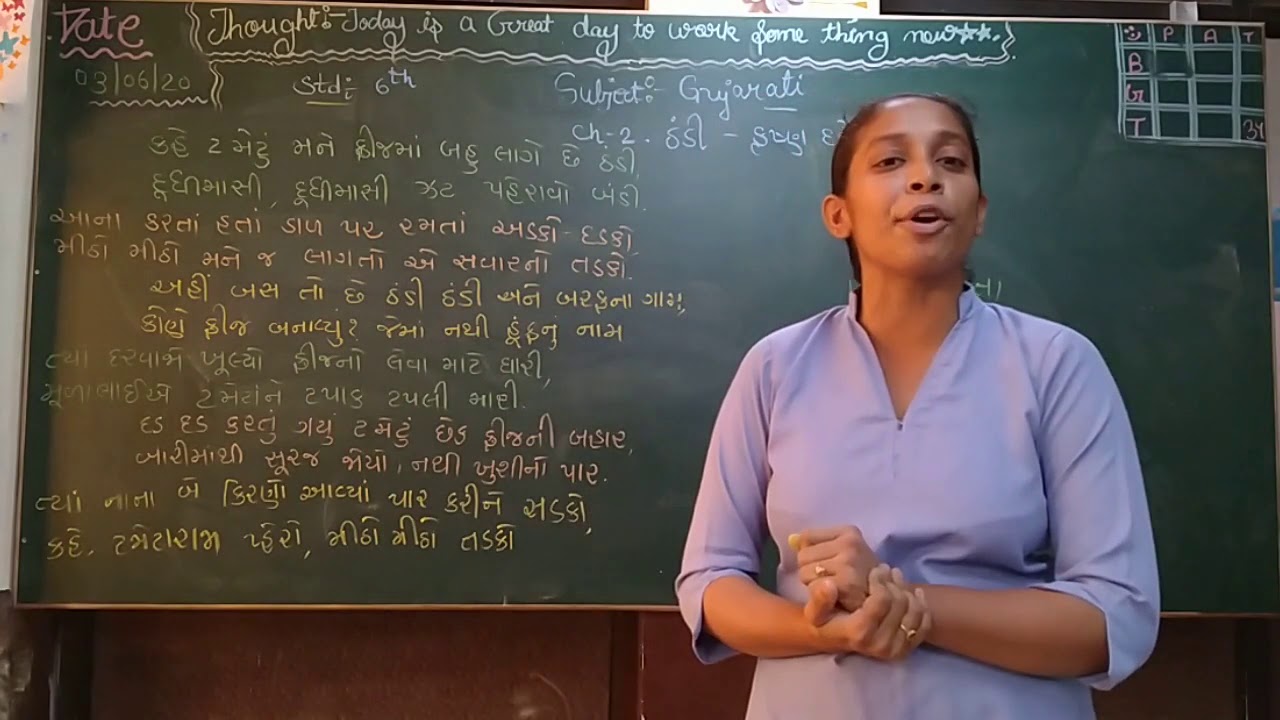 Date
Thought:- Today is a Great day to work Some thing new**.
03/06/20
Std: 6th
Subject:- Gujarati
Ch-2. ઠંડી - કૃષ્ણ
કહે ટમેટું મને ફ્રીજમાં બહુ લાગે છે ઠંડી,
દૂધીમાસી, દૂધીમાસી ઝટ પહેરાવો બંડી.
આના કરતાં હતાં ડાળ પર રમતાં અડકો-દડકો,
મીઠો મીઠો મને જ લાગતો એ સવારનો તડકો.
અહીં બસ તો છે ઠંડી ઠંડી અને બરફના ગામ,
કોણે ફ્રીજ બનાવ્યું? જેમાં નથી હૂંફનું નામ
ત્યાં દરવાજો ખૂલ્યો ફ્રીજનો લેવા માટે ઘારી,
મૂળાભાઈએ ટમેટાંને ટપાક ટપલી મારી.
દડ દડ કરતું ગયું ટમેટું છેક ફ્રીજની બહાર,
બારીમાંથી સૂરજ જોયો, નથી ખુશીનો પાર.
ત્યાં નાના બે કિરણો આવ્યાં પાર કરીને સડકો,
કહે. ટમેટારામ પહેરો, મીઠો મીઠો તડકો
P A T
B
G
T